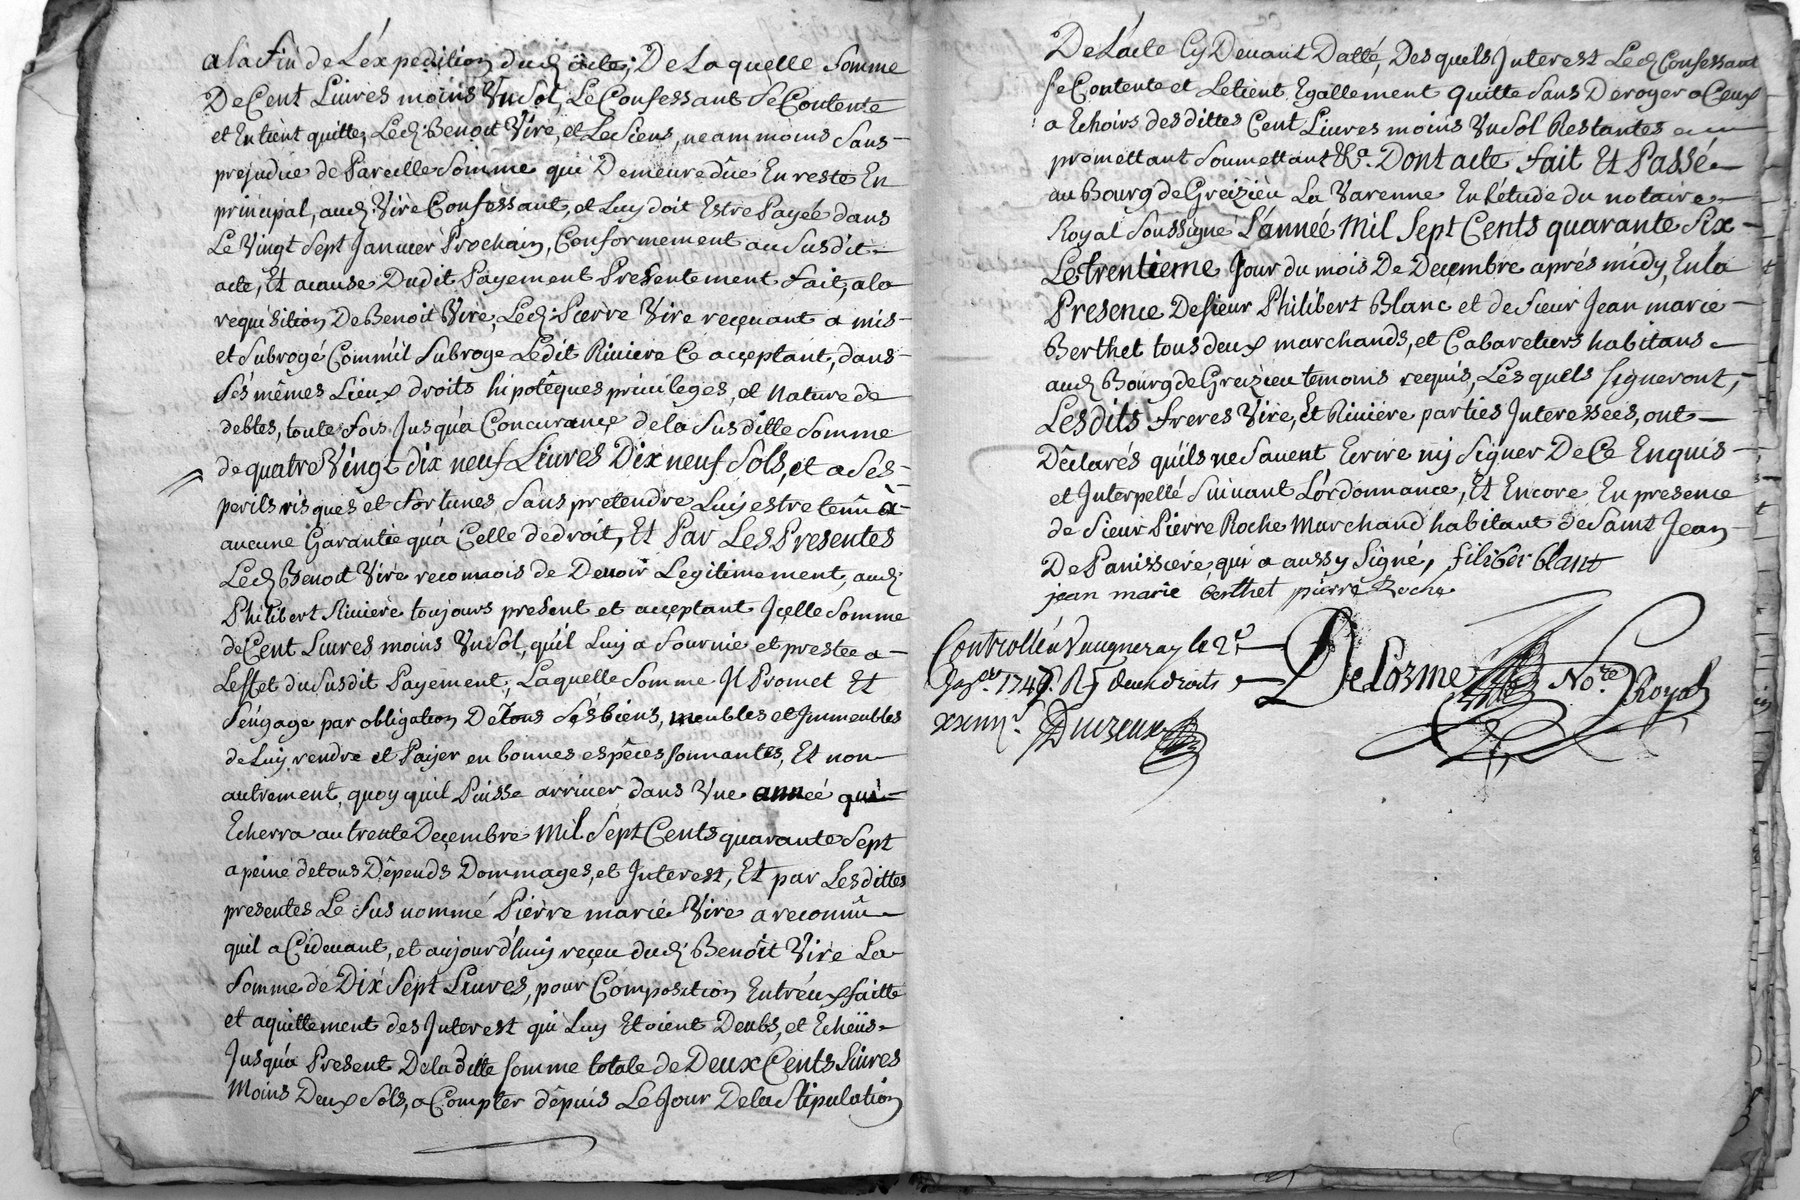 a la fin de L'expedition dud acte; De Laquelle Somme
De Cent Livres moins Un Sol, Le Confessant Se Contente
et En tient quitte, Led. Benoit Vire, et Les Siens, neammoins Sans
prejudice de Pareille Somme qui Demeure dûe En reste En
principal, aud. Vire Confessant, et Luy doit Estre Payée dans
Le Vingt Sept Janvier Prochain, Conformement au Susdit
acte, Et acause Dudit Payement Presentement fait, a la
requisition De Benoit Vire, Led. Pierre Vire reçevant a mis
et Subrogé Comm'il Subroge Ledit Riviere Ce acçeptant, dans
Sés mêmes Lieux droits hipotêques privileges, et Nature de
debtes, toute fois Jusqu'a Concurance de la Susditte Somme
de quatre Vingt dix neuf Livres Dix neuf Sols, et a Ses
perils risques et fortunes Sans pretendre Luy estre tenû à
aucune Garantie qu'a Celle de droit, Et Par Les Presentes
Led. Benoit Vire reconnois de Devoir Legitimement, aud.
Philibert Riviere toujours present et acçeptant Jçelle Somme
de Cent Livres moins Un Sol, qu'il Luy a fournie et prestée a
L'effet du Susdit Payement, Laquelle Somme Il Promet Et
S'engage par obligation De tous Sés biens, meubles et Immeubles
de Luy rendre et Payer en bonnes espêces Sonnantes, Et non
autrement, quoy quil Puisse arriver dans Une année qui
Echerra au trente Deçembre Mil Sept Cents quarante Sept
a peine de tous Dêpends Dommages, et Interest, Et par Les dittes
presentes Le Sus nommé Pierre marie Vire a reconnû
quil a Cidevant, et aujourd'huy reçeu dud. Benoit Vire La
Somme de Dix Sept Livres, pour Composition Entr'eux faitte
et aquittement des Interest qui Luy Etoient Deubs, et Echeüs
Jusqu'a Present De la ditte Somme totale de Deux Cents Livres
Moins Deux Sols, a Compter dêpuis Le Jour De la Stipulation
De L'acte Cy Devant Datté, Des quels Interest Led. Confessant
Se Contente et Le tient Egallement quitte Sans Deroger a Ceux
a Echoirs des dittes Cent Livres moins Un Sol Restantes
promettant Soumettant &a. Dont acte fait Et Passé
au Bourg de Greizieu La Varenne En L'étude du notaire
Royal Soussigné L'année Mil Sept Cents quarante Six
Le trentieme Jour du mois De Deçembre aprés midy, En la
Presence De Sieur Philibert Blanc et de Sieur Jean marie
Berthet tous deux marchands, et Cabaretiers habitans
aud. Bourg de Greizieu temoins requis, Lesquels Signeront,
Lesdits freres Vire, Et Riviere parties Interessées, ont
Dêclarés qu'ils ne Savent Ecrire ny Signer De Ce Enquis
et Interpellé Suivant L'ordonnance, Et Encore En presence
de Sieur Pierre Roche Marchand habitant de Saint Jean
De Panissiere qui a aussy Signé, filiber blant
jean marie berthet pierre Roche
Controllé a Vaugneray le 2e
Janer. 1747. R deux droits
xxiiii s.
Delorme Nore. Royal